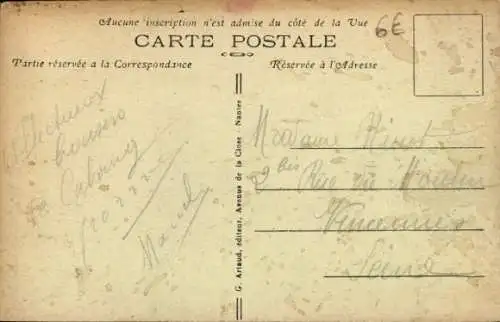 Aucune inscription n'est admise du côté de la Vue
6€
CARTE POSTALE
Partie réservée a la Correspondance
Réservée à l'Adresse
Affectueux
Marcel
G. Artaud, éditeur, Avenue de la Close - Nantes
Madame
2 bis Rue du Moulin
Vincennes
Seine